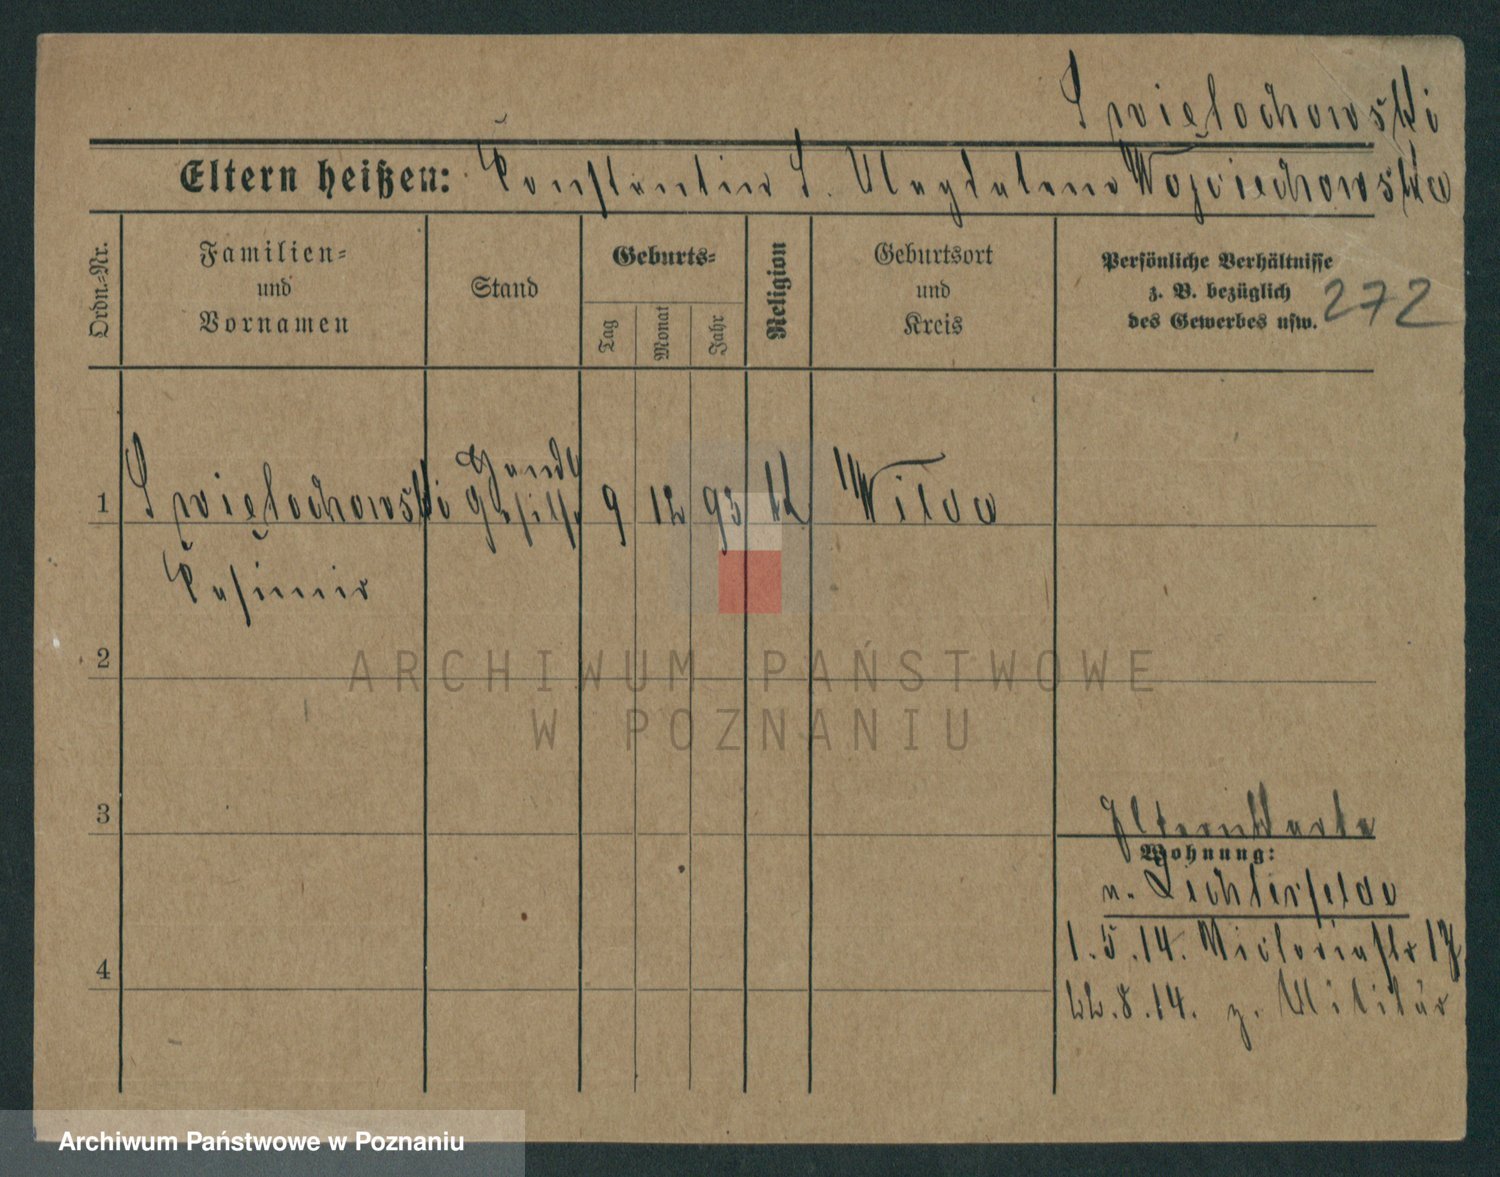 Swiętochowski
Eltern heißen: Konstantin S. Magdalena Wojciechowska
Ordn.-Nr.
Familien=
und
Vornamen
Stand
Geburts=
Tag
Monat
Jahr
Religion
Geburtsort
und
Kreis
Persönliche Verhältnisse
z. B. bezüglich
des Gewerbes usw.
272
1 Swiętochowski Handl Gehilfe 9 12 93 k Wilda
Kasimir
2
3
4
Elternkarte
Wohnung:
n. Lichterfelde
1.5.14. Victoriastr 17
22.8.14. z. Militär
ARCHIWUM PAŃSTWOWE
W POZNANIU
Archiwum Państwowe w Poznaniu